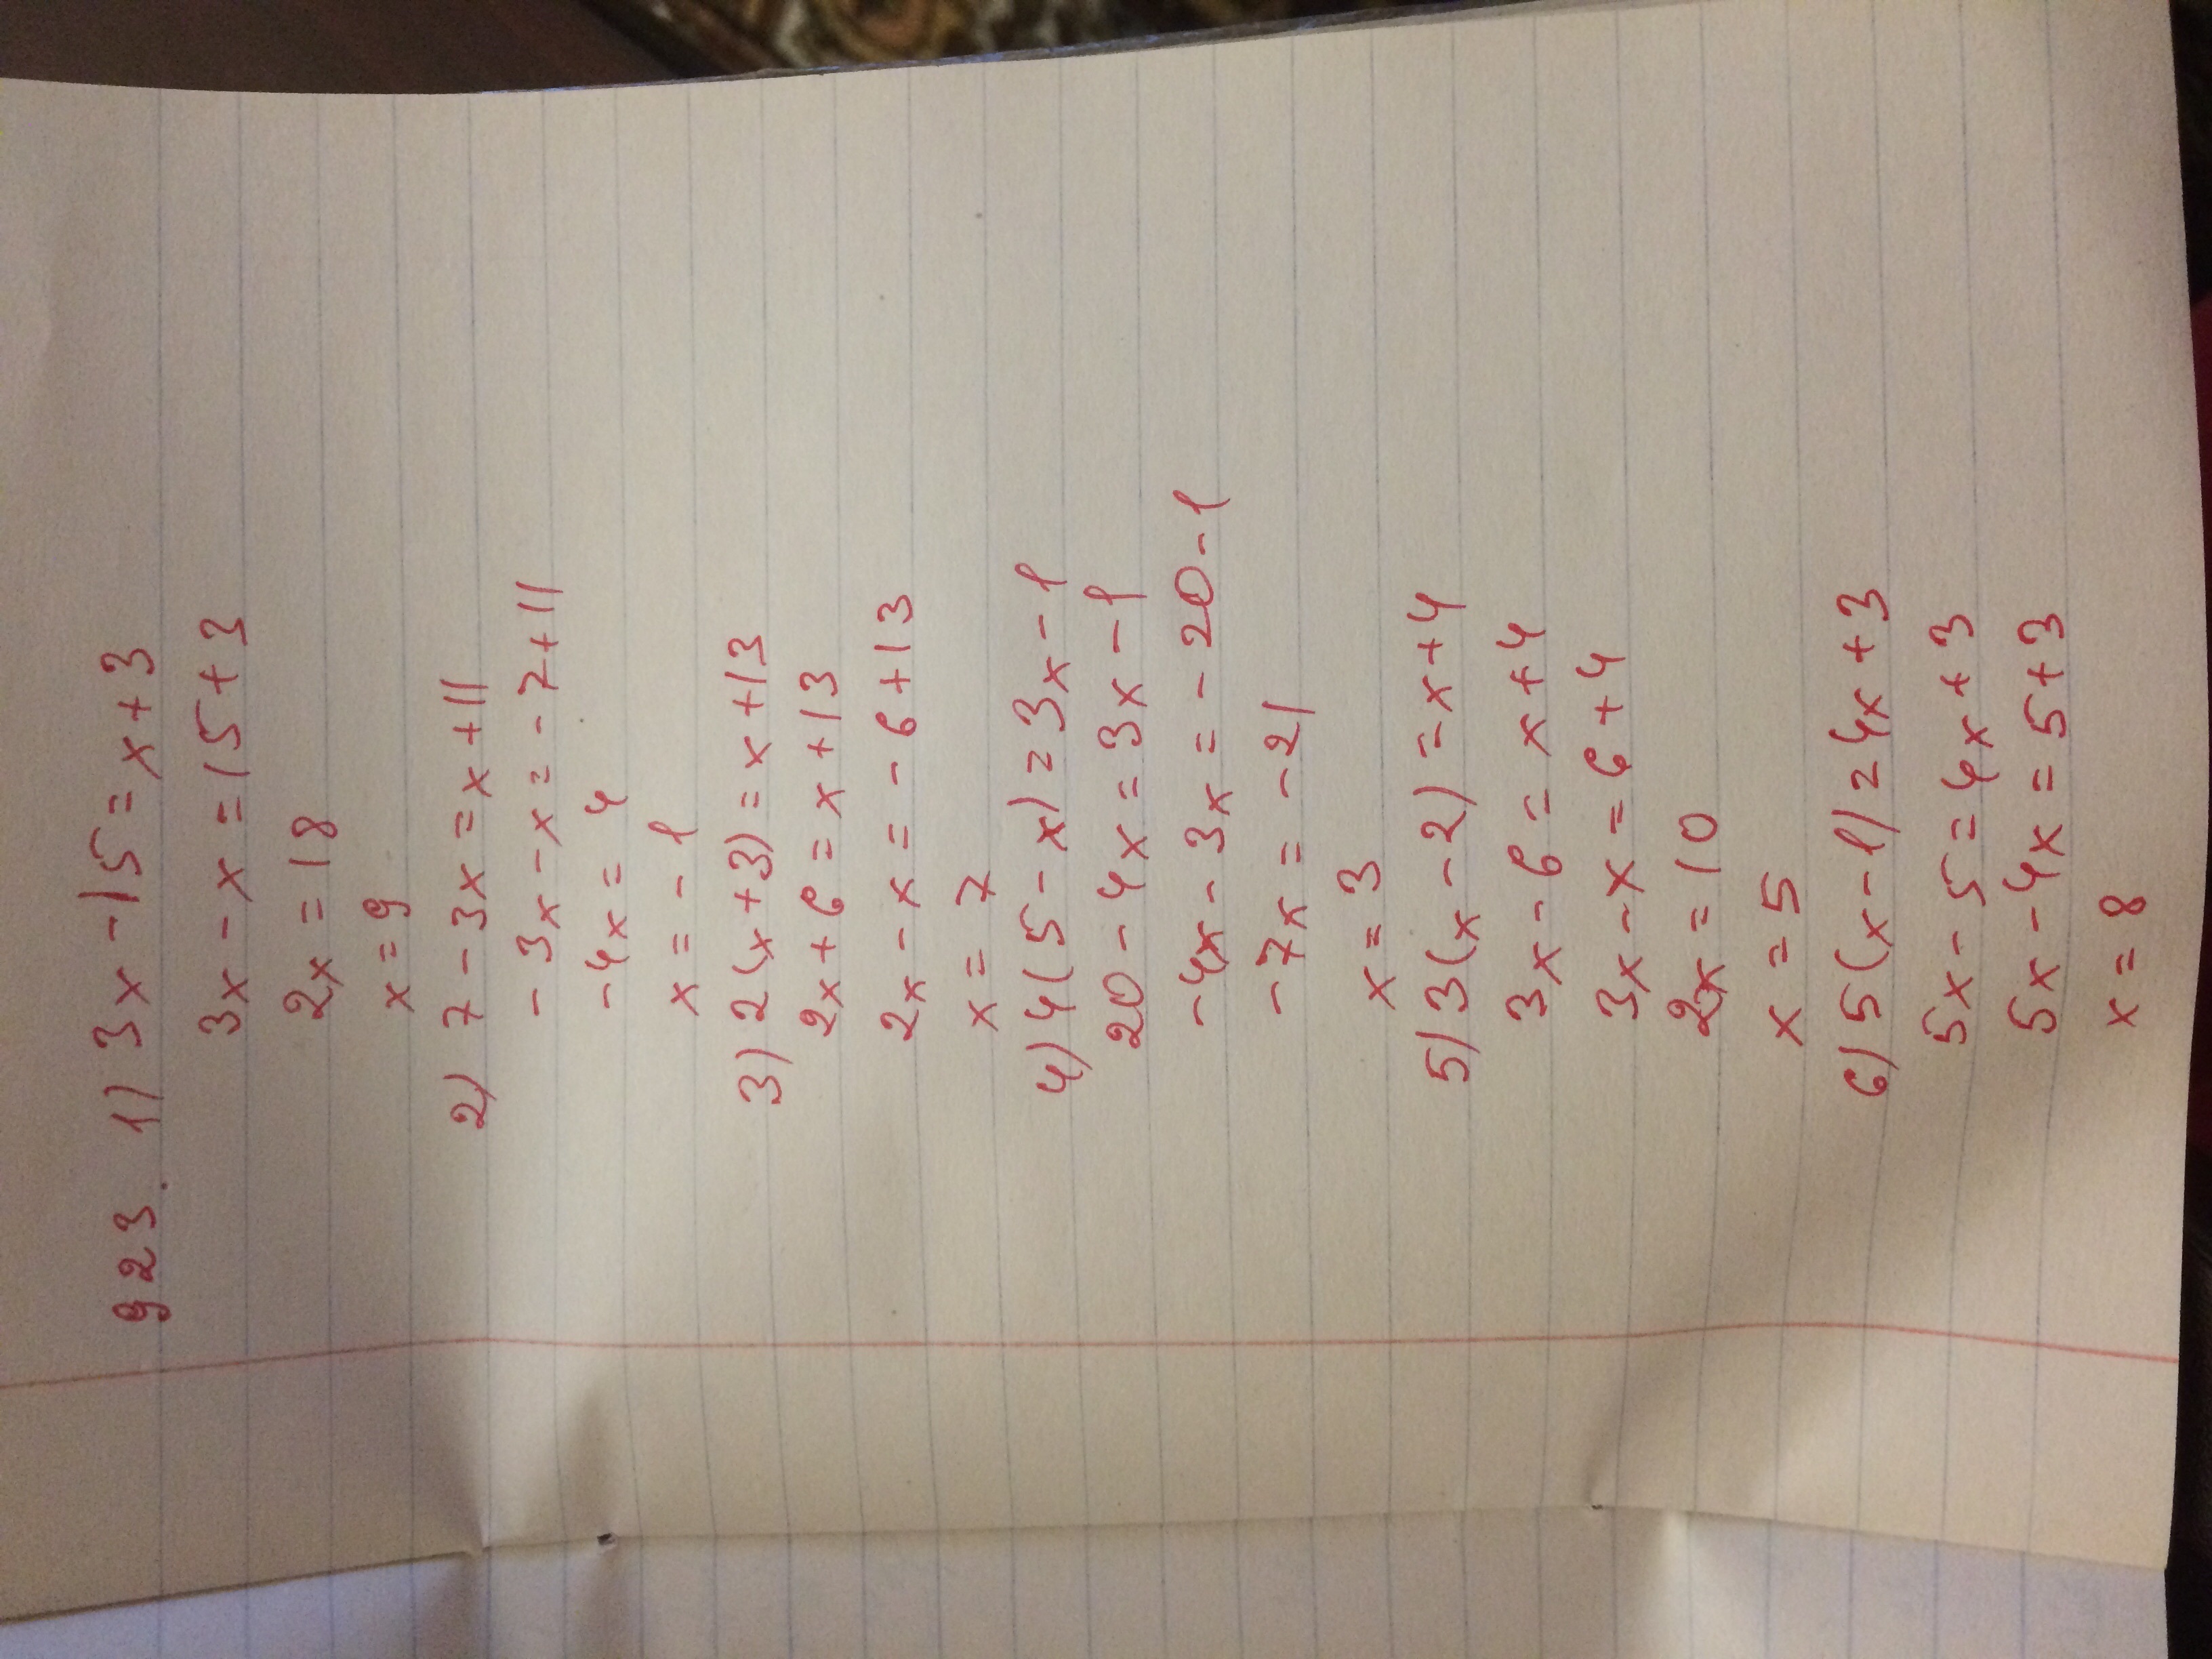 923. 1) 3x-15=x+3
3x-x=15+3
2x=18
x=9
2) 7-3x=x+11
-3x-x=-7+11
-4x=4
x=-1
3) 2(x+3)=x+13
2x+6=x+13
2x-x=-6+13
x=7
4) 4(5-x)=3x-1
20-4x=3x-1
-4x-3x=-20-1
-7x=-21
x=3
5) 3(x-2)=x+4
3x-6=x+4
3x-x=6+4
2x=10
x=5
6) 5(x-1)=4x+3
5x-5=4x+3
5x-4x=5+3
x=8